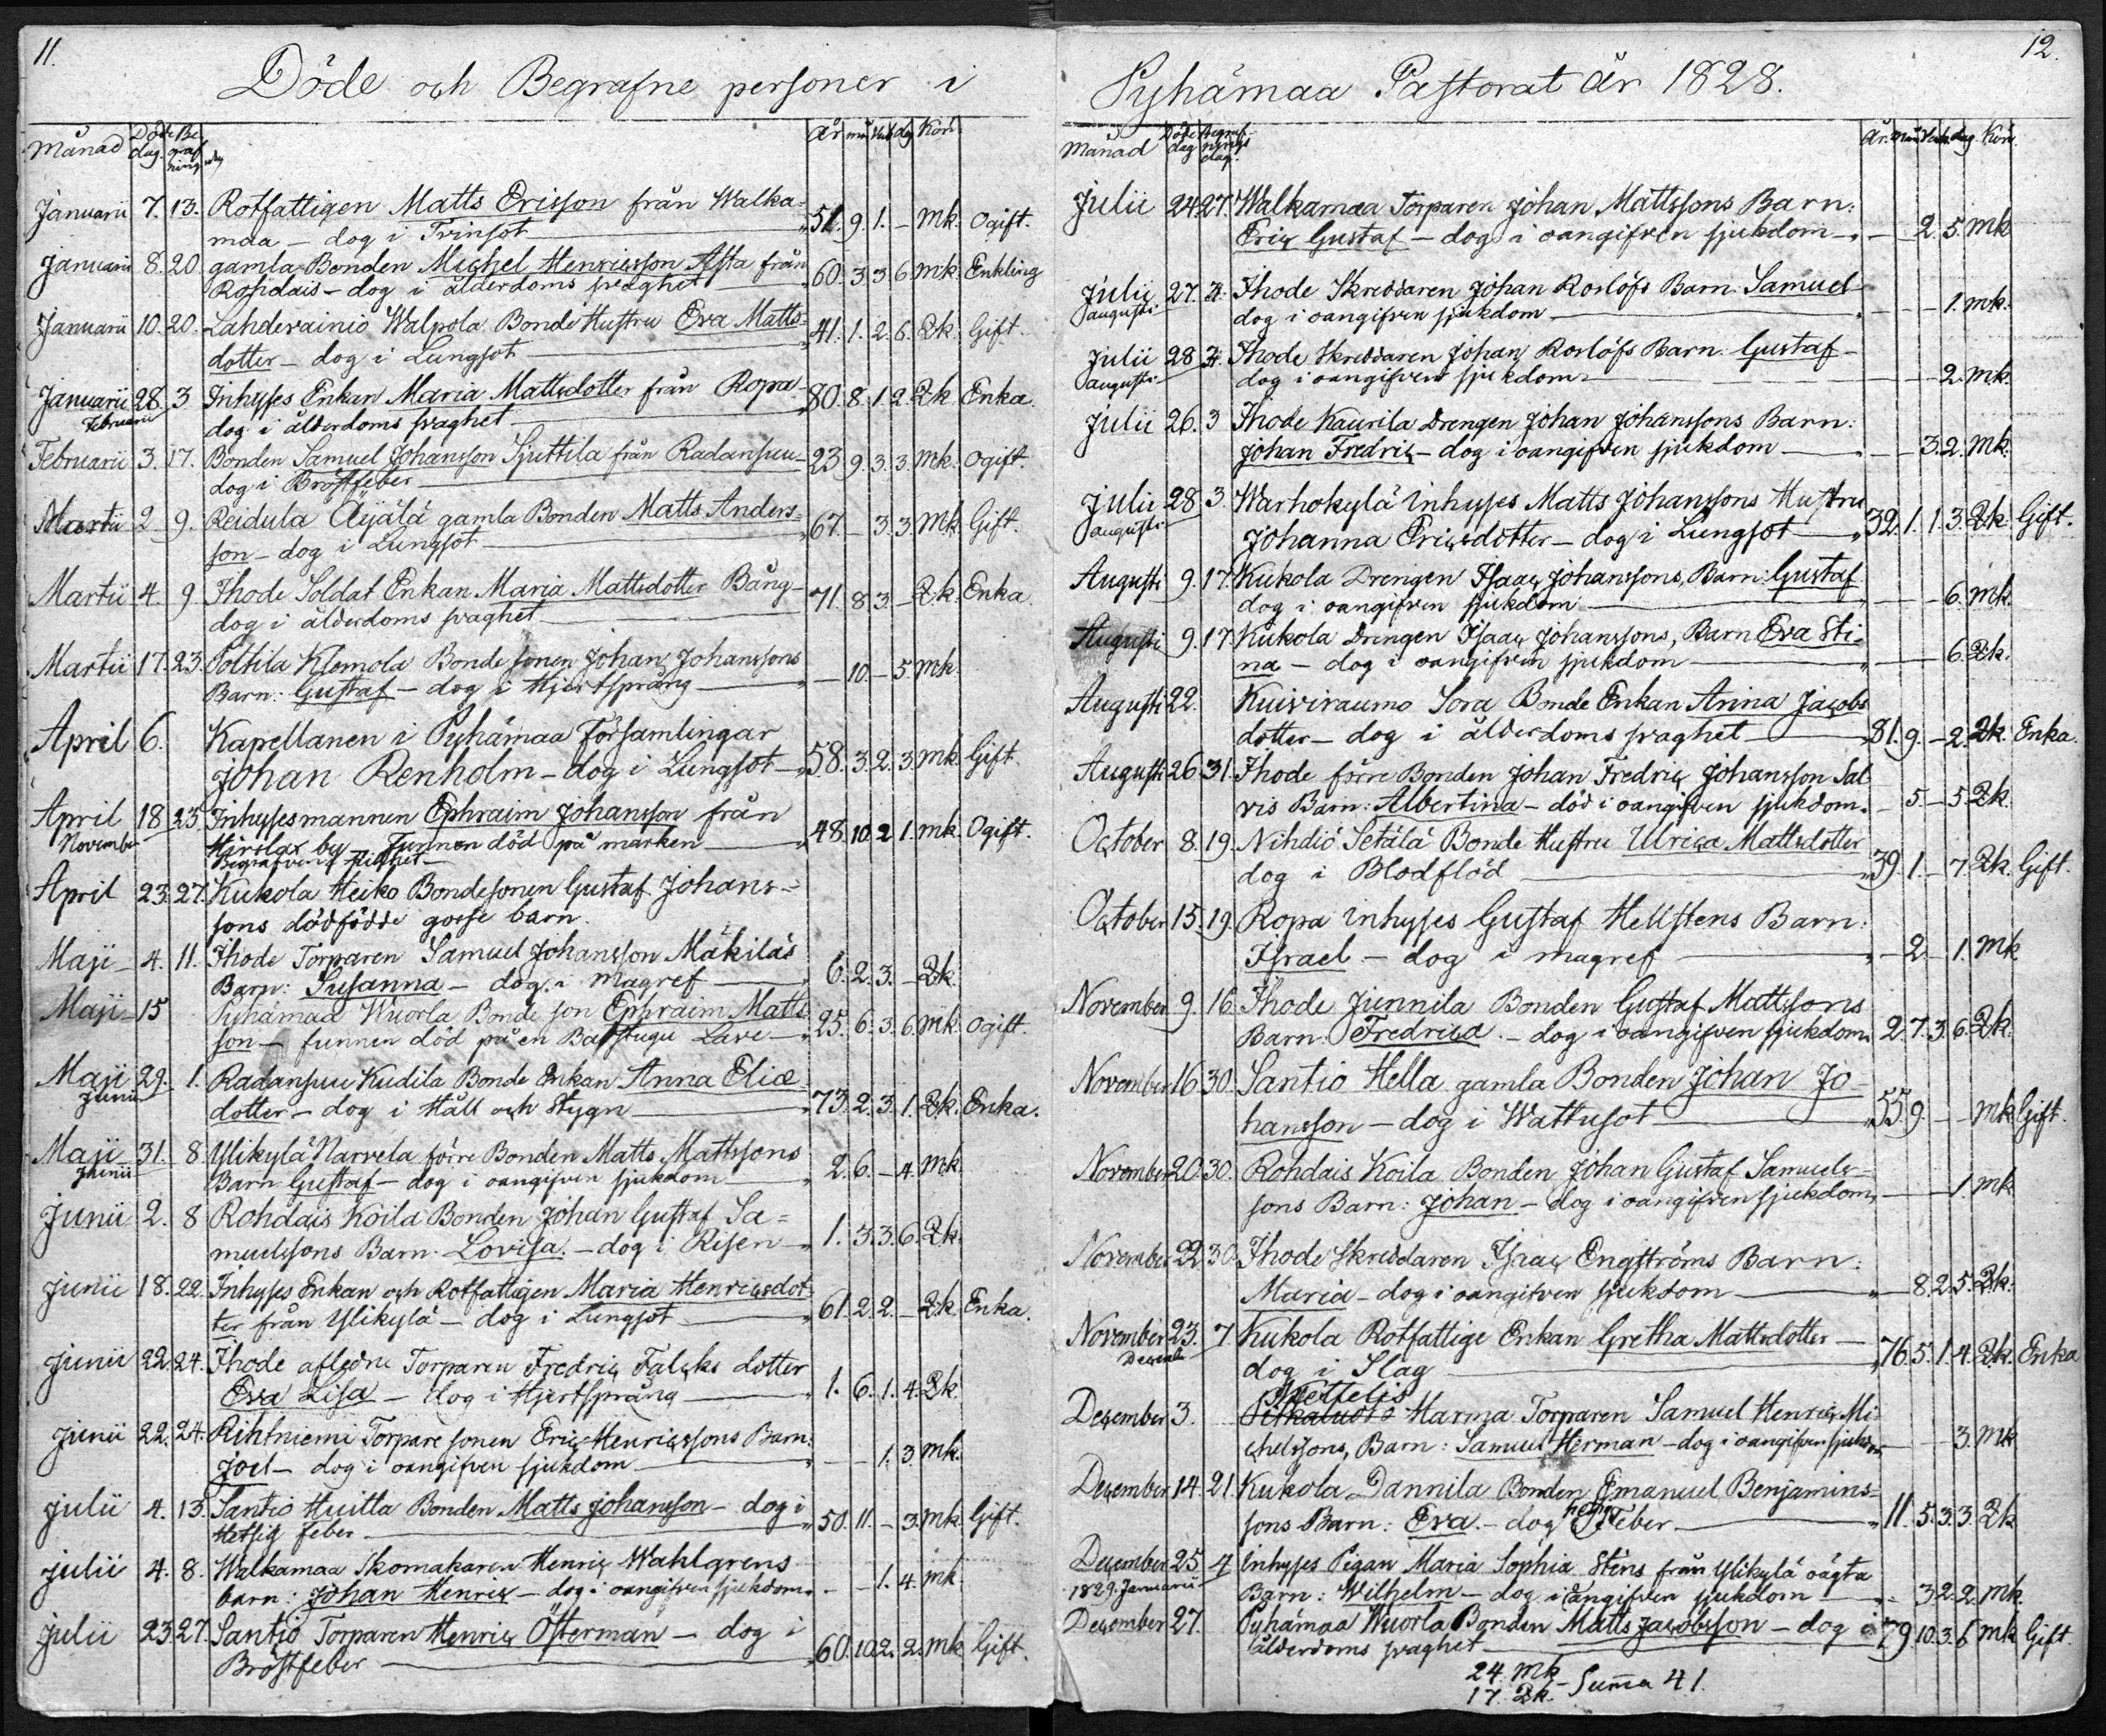 11.
Döde och Begrafne personer i
Månad Döde dag. Be graf ning dag År mån Veck dag Kön
Januarii 7. 13. Rotfattigen Matts Ericsson från Walka=
maa — dog i Tvinsot — 51. 9. 1. — mk. Ogift.
Januarii 8. 20. gamla Bonden Michel Henricsson Asta från
Rohdais — dog i ålderdoms svaghet — 60. 3 3 6 mk. Enkling
Januarii 10. 20. Lahdevainio Walpola Bonde Hustru Eva Matts=
dotter — dog i Lungsot — 41. 1. 2. 6. Qk. Gift.
Januarii 28 3 Inhyses Enkan Maria Mattsdotter från Ropa —
Februarii dog i ålderdoms svaghet — 80. 8. 1. 2. Qk Enka.
Februarii 3. 17. Bonden Samuel Johansson Sjuttila från Radansuu —
dog i Bröstfeber — 23 9. 3. 3. mk. Ogift.
Martii 2 9. Reidula Äijälä gamla Bonden Matts Anders=
son — dog i Lungsot — 67. — 3. 3. mk Gift.
Martii 4. 9 Ihode Soldat Enkan Maria Mattsdotter Bång —
dog i ålderdoms svaghet — 71. 8 3. — Qk. Enka.
Martii 17. 23. Polttila Klemola Bonde sonen Johan Johanssons
Barn: Gustaf — dog i Hjertsprång — — 10. — 5 mk.
April 6. Kapellanen i Pyhämaa Församlingar
Johan Renholm — dog i Lungsot — 58. 3. 2. 3. mk. Gift.
April 18 23. Inhysesmannen Ephraim Johansson från
November Hirslax by — Funnen död på marken — 48. 10. 2 1. mk. Ogift.
Begrafven i stillhet —
April 23. 27. Kukola Heiko Bondesonen Gustaf Johans=
sons dödfödde gosse barn.
Maji — 4. 11. Ihode Torparen Samuel Johansson Mäkiläs
Barn: Susanna — dog i magref — 6. 2. 3. — Qk.
Maji — 15 Pyhämaa Wuorla Bonde son Ephraim Matts
son — funnen död på en Badstugu Lave — 25. 6. 3. 6. mk. ogift.
Maji 29. 1. Radansuu Kudila Bonde Enkan Anna Eliæ
Junii dotter — dog i Håll och Stygn — 73. 2. 3. 1. Qk. Enka.
Maji 31. 8 Ylikylä Narvela förre Bonden Matts Mattssons
Junii Barn Gustaf — dog i oangifven sjukdom — 2. 6. — 4. mk
Junii 2. 8 Rohdais Koila Bonden Johan Gustaf Sa=
muelssons Barn. Lovisa. — dog i Risen — 1. 3. 3. 6. Qk.
Junii 18. 22. Inhyses Enkan och Rotfattigen Maria Henricsdot
ter från Ylikylä — dog i Lungsot — 61. 2. 2. — Qk. Enka.
Junii 22 24. Ihode aflednе Torparen Fredric Falcks dotter
Eva Lisa — dog i Hjertsprång — 1. 6. 1. 4. Qk.
Junii 22. 24. Rihtniemi Torpare sonen Eric Henricssons Barn:
Joel — dog i oangifven sjukdom — — — 1. 3 mk.
Julii 4. 13. Santio Huitla Bonden Matts Johansson — dog i
Hetsig feber — 50. 11. — 3. mk. Gift.
Julii 4. 8. Walkamaa Skomakaren Henric Wahlgrens
barn: Johan Henric — dog i oangifven sjukdom. — — 1. 4. mk.
Julii 23 27. Santio Torparen Henric Österman — dog i
Bröstfeber — 60. 10. 2. 2. mk Gift.
12.
Pyhämaa Pastorat År 1828.
Månad Döde dag Begraf= nings dag. År. mån Veck. dag. Kön.
Julii 24 27. Walkamaa Torparen Johan Mattssons Barn:
Eric Gustaf — dog i oangifven sjukdom — — 2. 5. mk
Julii 27. 3. Ihode Skreddaren Johan Roslöfs Barn. Samuel —
augusti. dog i oangifven sjukdom — — — — 1. mk.
Julii 28 3. Ihode Skreddaren Johan Roslöfs Barn: Gustaf —
augusti dog i oangifven sjukdom — — — — 2. mk.
Julii 26. 3 Ihode Kaurila Drengen Johan Johanssons Barn:
Johan Fredric — dog i oangifven sjukdom — — 3. 2. mk.
Julii 28 3. Warhokylä inhyses Matts Johanssons Hustru
augusti Johanna Ericsdotter — dog i Lungsot — 32. 1. 1. 3. Qk Gift.
Augusti 9. 17. Kukola Drengen Isaac Johanssons, Barn: Gustaf
dog i oangifven sjukdom — — — — 6. mk.
Augusti 9. 17. Kukola Drengen Isaac Johanssons, Barn Eva Sti=
na — dog i oangifven sjukdom — — — 6. Qk.
Augusti 22. Kuiviraumo Sora Bonde Enkan Anna Jacobs
dotter — dog i ålderdoms svaghet — 81. 9. — 2. Qk. Enka.
Augusti 26. 31. Ihode förre Bonden Johan Fredric Johansson Sal
vis Barn: Albertina — död i oangifven sjukdom. — 5 — 5 Qk.
October 8. 19. Nihdiö Setälä Bonde Hustru Ulrica Mattsdotter
dog i Blodflöd — 39 1. — 7 Qk. Gift.
October 15. 19. Ropa inhyses Gustaf Hellstens Barn:
Israel — dog i magref — — 2 — 1. mk
November 9. 16. Ihode Junnila Bonden Gustaf Mattssons
Barn: Fredrica. — dog i oangifven sjukdom 2. 7. 3. 6. Qk.
November 16 30. Santio Hella gamla Bonden Johan Jo=
hansson — dog i Wattusot — 55. 9. — — mk Gift.
November 20. 30. Rohdais Koila Bonden Johan Gustaf Samuels=
sons Barn: Johan — dog i oangifven sjukdom, — — — 1. mk
November 22 30 Ihode Skreddaren Isac Engströms Barn:
Maria — dog i oangifven sjukdom — — 8. 2. 5. Qk.
November 23. 7 Kukola Rotfattige Enkan Gretha Mattsdotter —
December dog i Slag — 76. 5. 1. 4. Qk. Enka
December 3. Harma Torparen Samuel Henric Mi=
chelssons, Barn: Samuel Herman — dog i oangifven sjukdom — — 3. mk
December 14. 21. Kukola Dannila Bonden Emanuel Benjamins=
sons Barn: Eva. — dog i Feber — 11. 5. 3. 3. Qk
December 25 4 inhyses Pigan Maria Sophia Stens från Ylikylä oägta
1829. Januarii Barn: Wilhelm — dog i oangifven sjukdom — — 3. 2. 2. mk.
December 27. Pyhämaa Wuorla Bonden Matts Jacobsson — dog i
ålderdoms svaghet — 79 10. 3. 6 mk Gift
24. mk
17. Qk. — Summa 41.